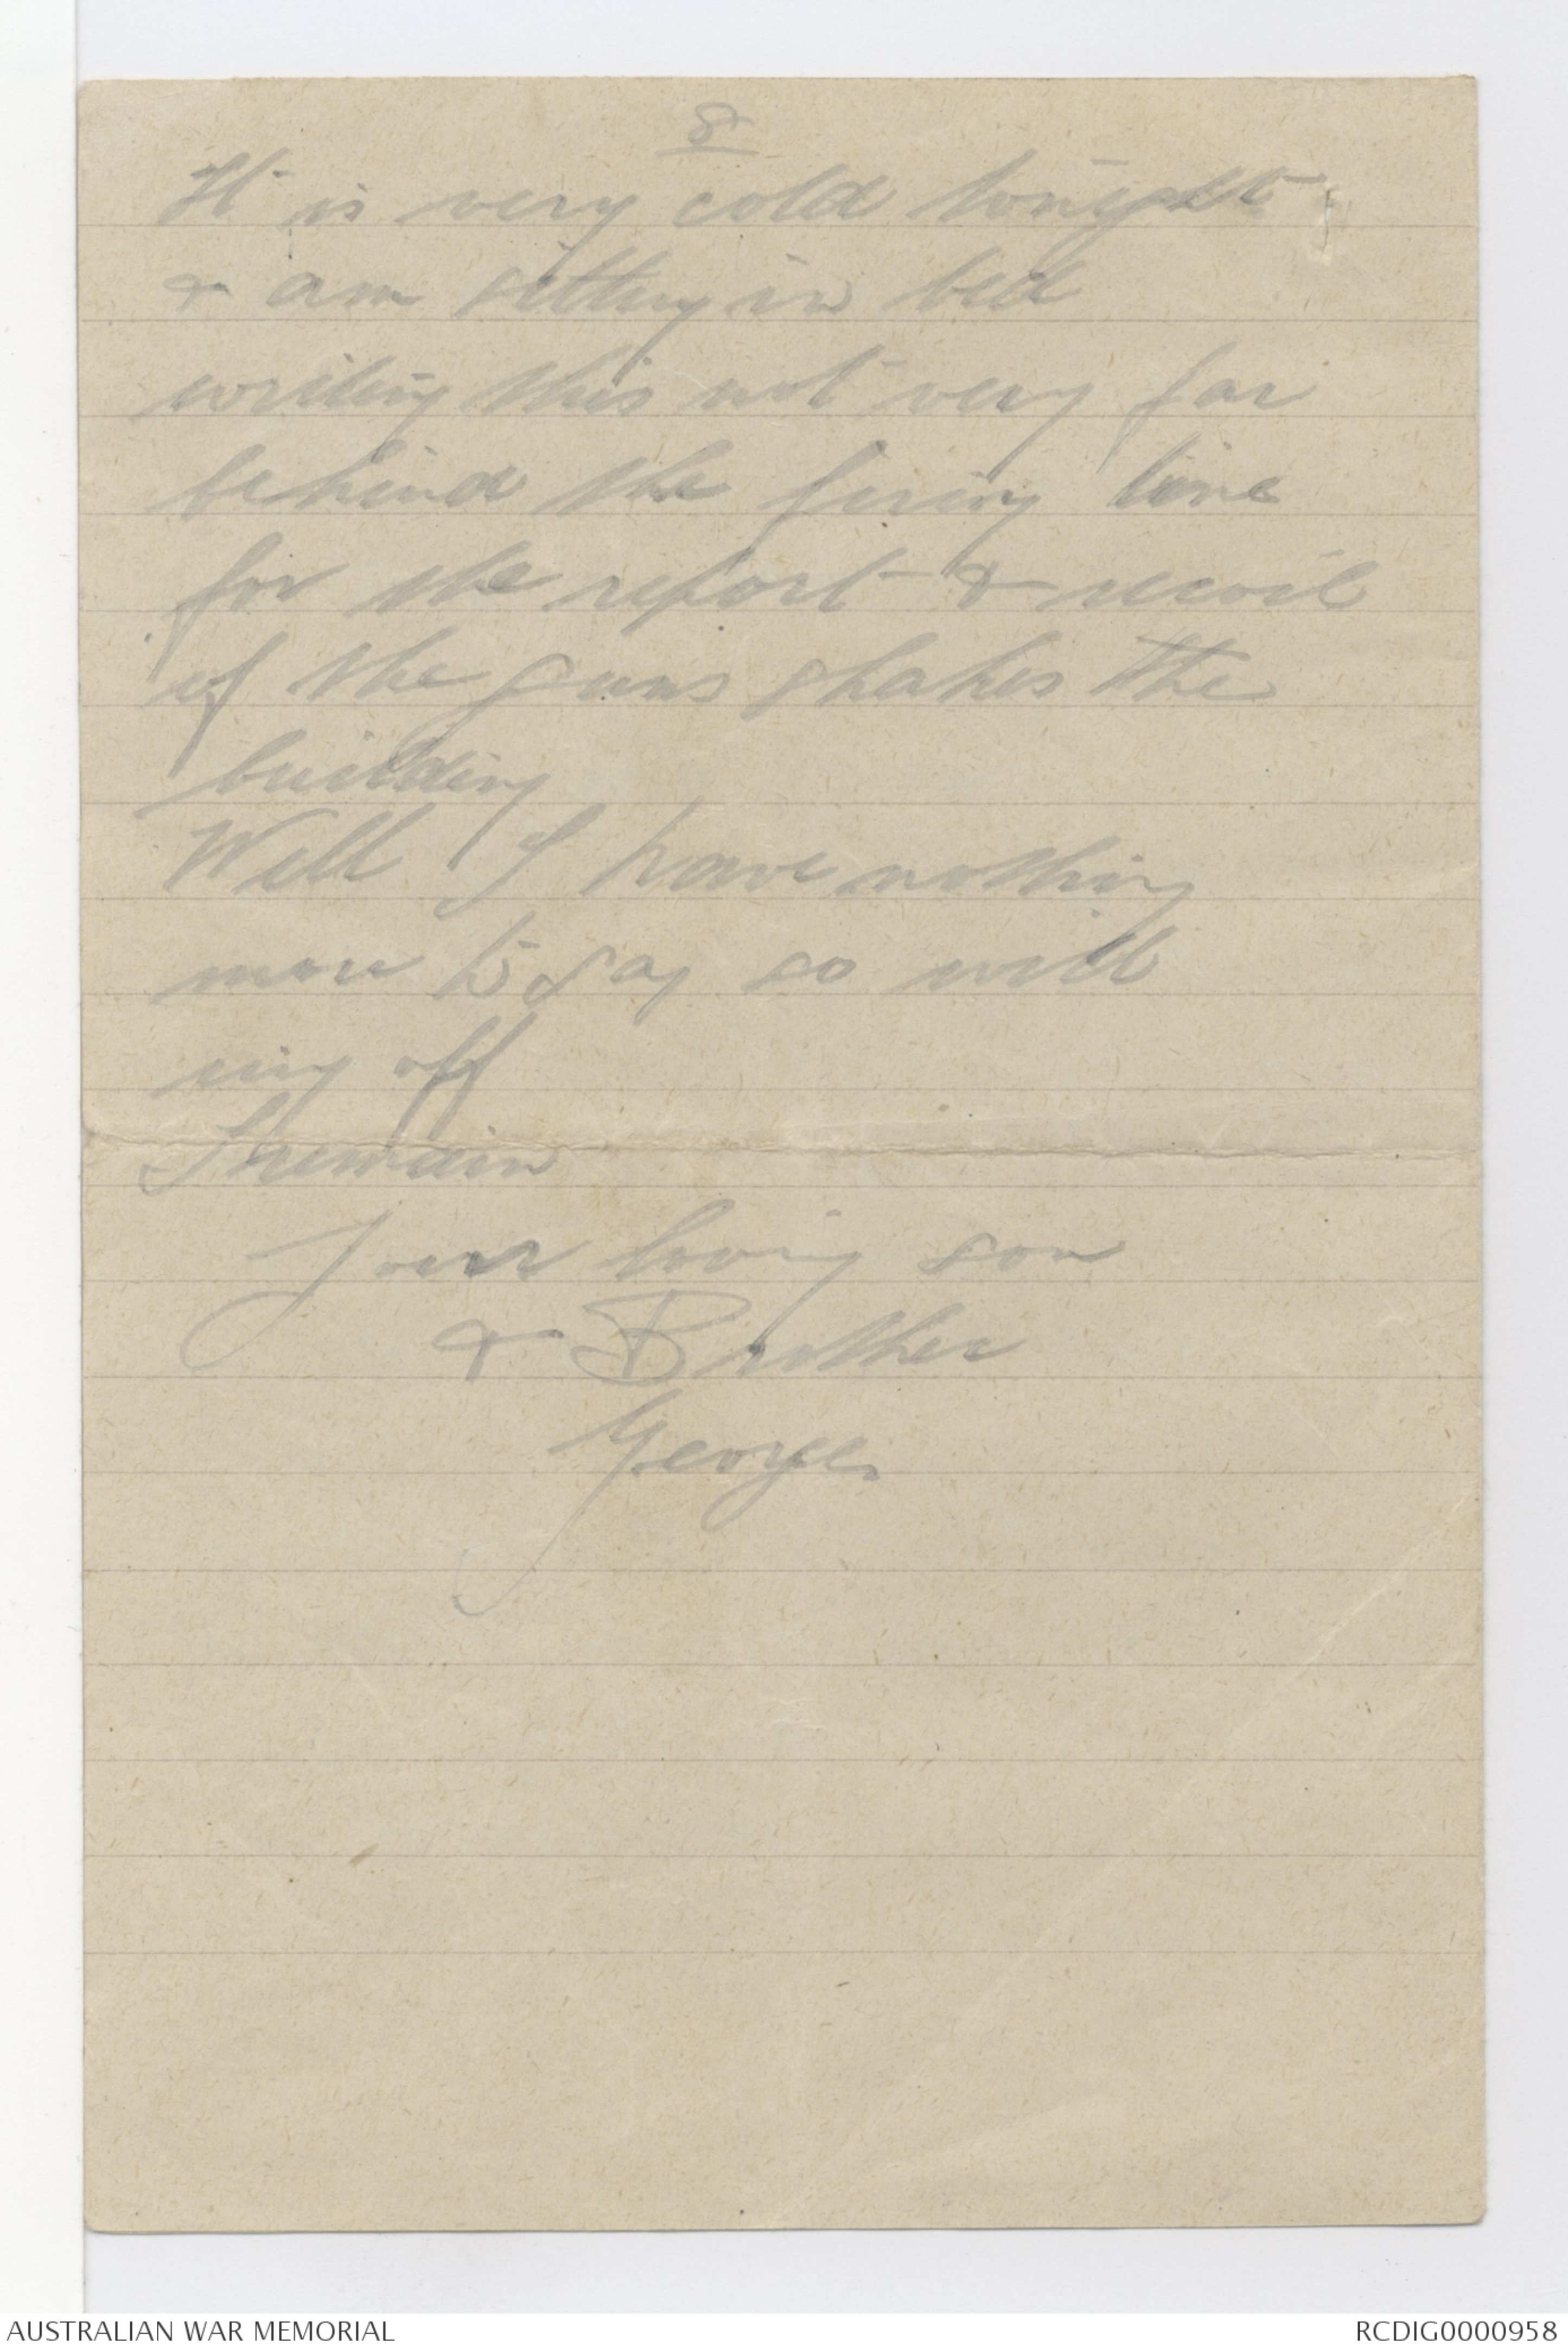 8
It is very cold tonight
& am sitting in bed
writing this not very far
behind the firing line
for the report & recoil
of the guns shakes the
building
Well I have nothing
more to say so will
ring off
I remain
Your loving son
& Brother
George.
AUSTRALIAN WAR MEMORIAL
RCDIG0000958